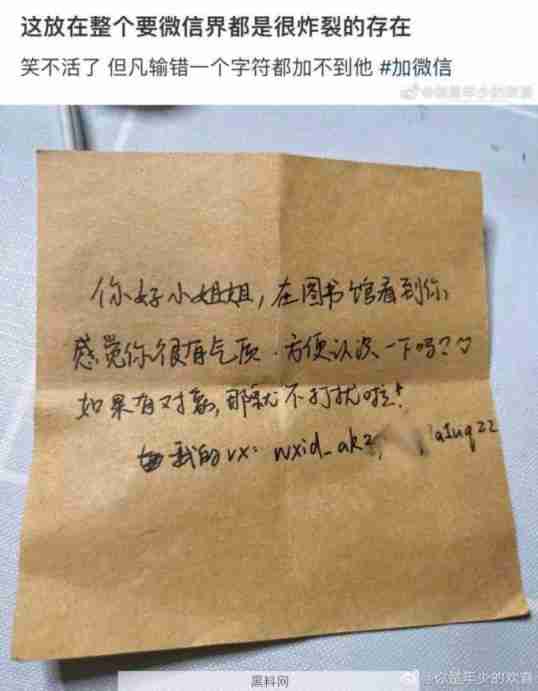 这放在整个要微信界都是很炸裂的存在
笑不活了 但凡输错一个字符都加不到他 #加微信
@你是年少的欢喜
你好小姐姐，在图书馆看到你，
感觉你很有气质．方便认识一下吗？♡
如果有对象，那就不打扰啦！
我的vx：wxid_ak2 a1uq22
黑料网
@你是年少的欢喜